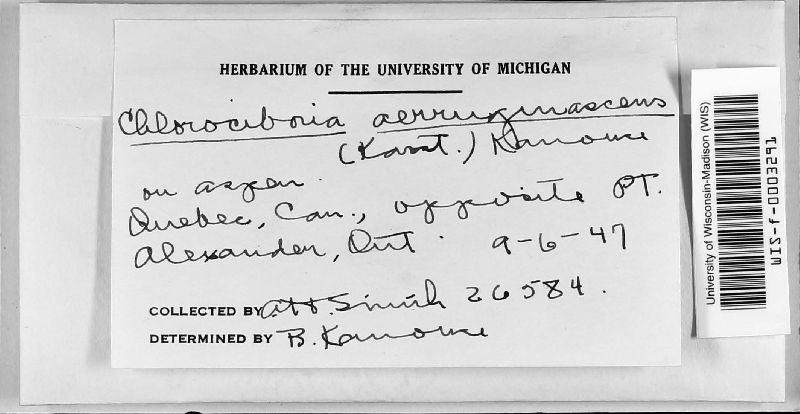 HERBARIUM OF THE UNIVERSITY OF MICHIGAN
Chlorociboria aeruginascens
(Karst.) Kanouse
on aspen.
Quebec, Can., opposite PT.
Alexander, Ont. 9-6-47
COLLECTED BY A H Smith 26584.
DETERMINED BY B. Kanouse
University of Wisconsin-Madison (WIS)
WIS-f-0003291